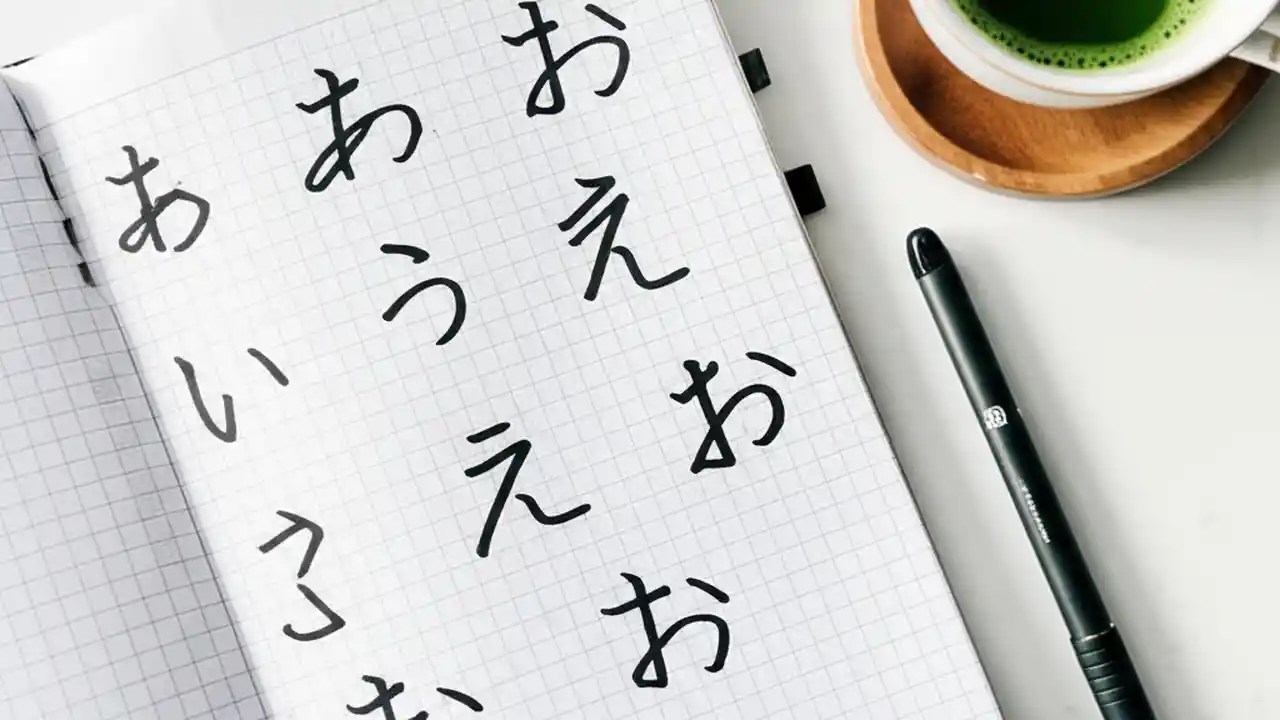 あい
お
あうえお
おえお